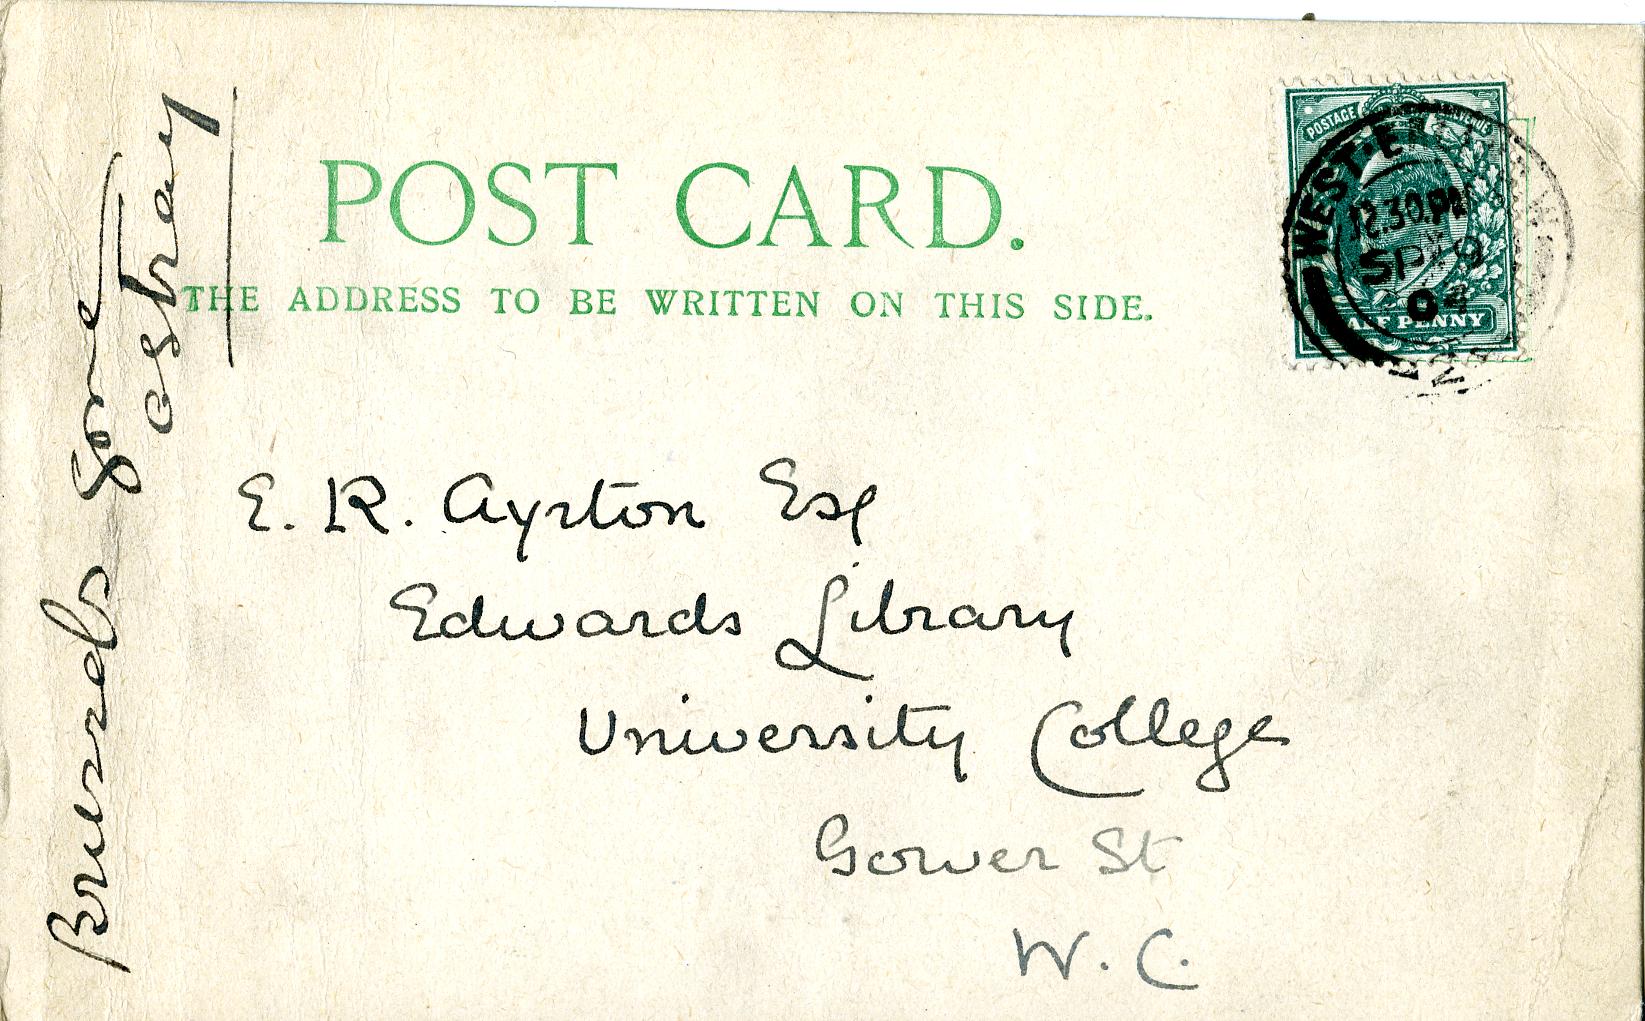 POST CARD.
THE ADDRESS TO BE WRITTEN ON THIS SIDE.
E. R. Ayrton Esq
Edwards Library
University College
Gower St
W. C.
gone
astray
POSTAGE REVENUE
HALF PENNY
WEST
12.30 PM
SP 9
04